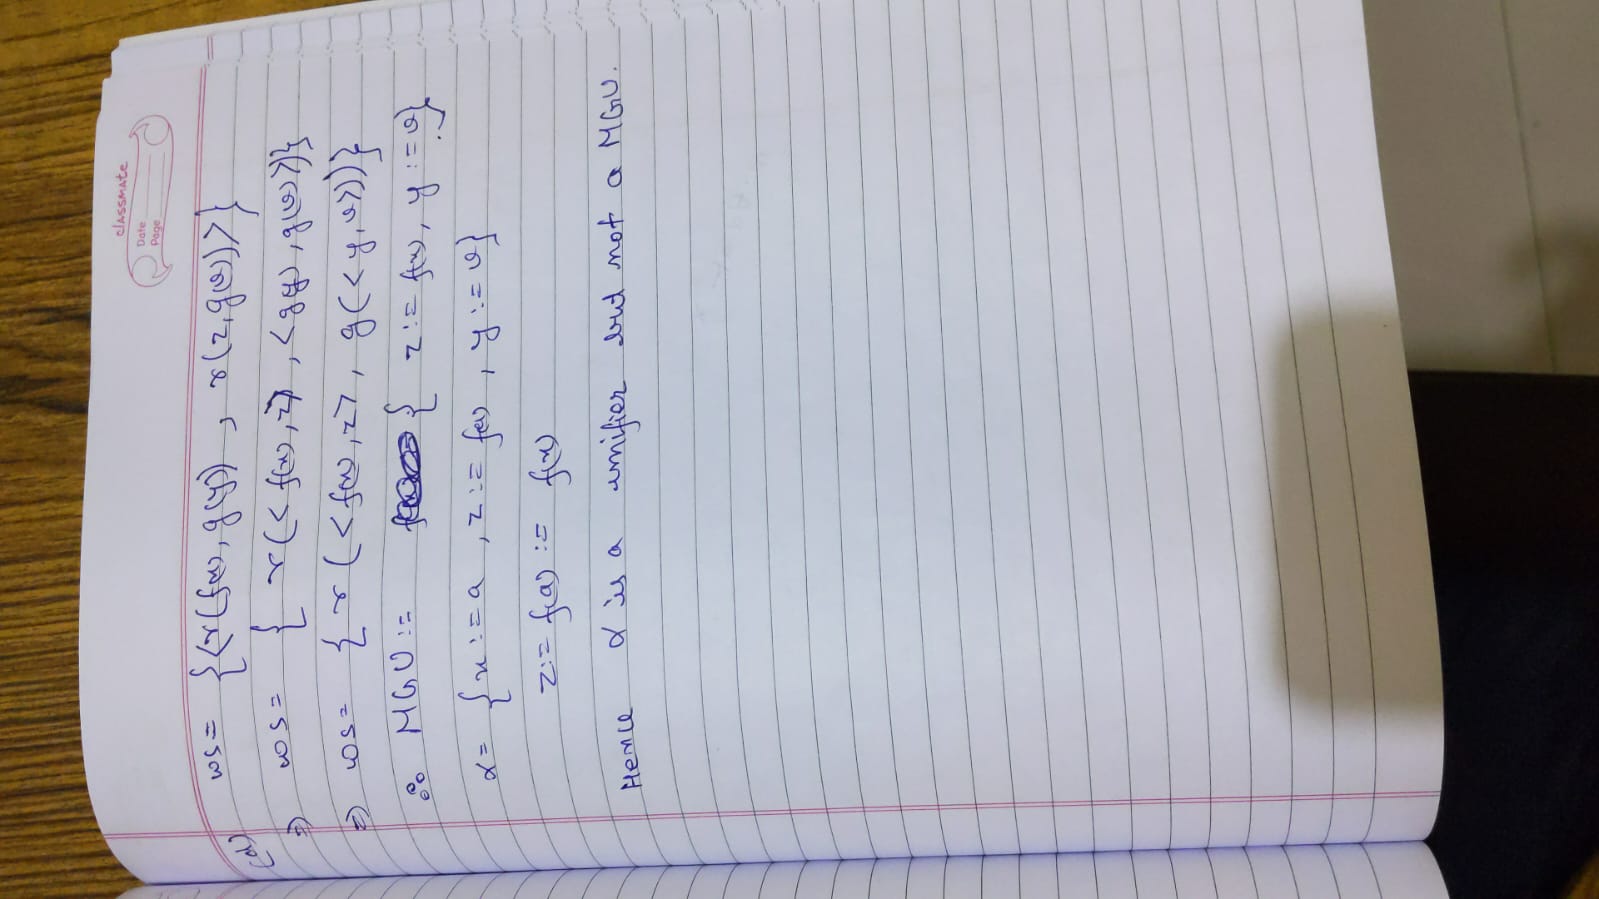 classmate
Date
Page
(d) ws = {<r(f(x), g(y)) , r(z, g(v))>}
⇒ ws = { r(<f(x), z> , <g(y), g(v)>)}
⇒ ws = { r (<f(x), z>, g(<y, v>))}
∴ MGU := { z := f(x), y := v}
α = {x := a , z := f(a) , y := v}
z := f(a) := f(x)
Hence α is a unifier but not a MGU.